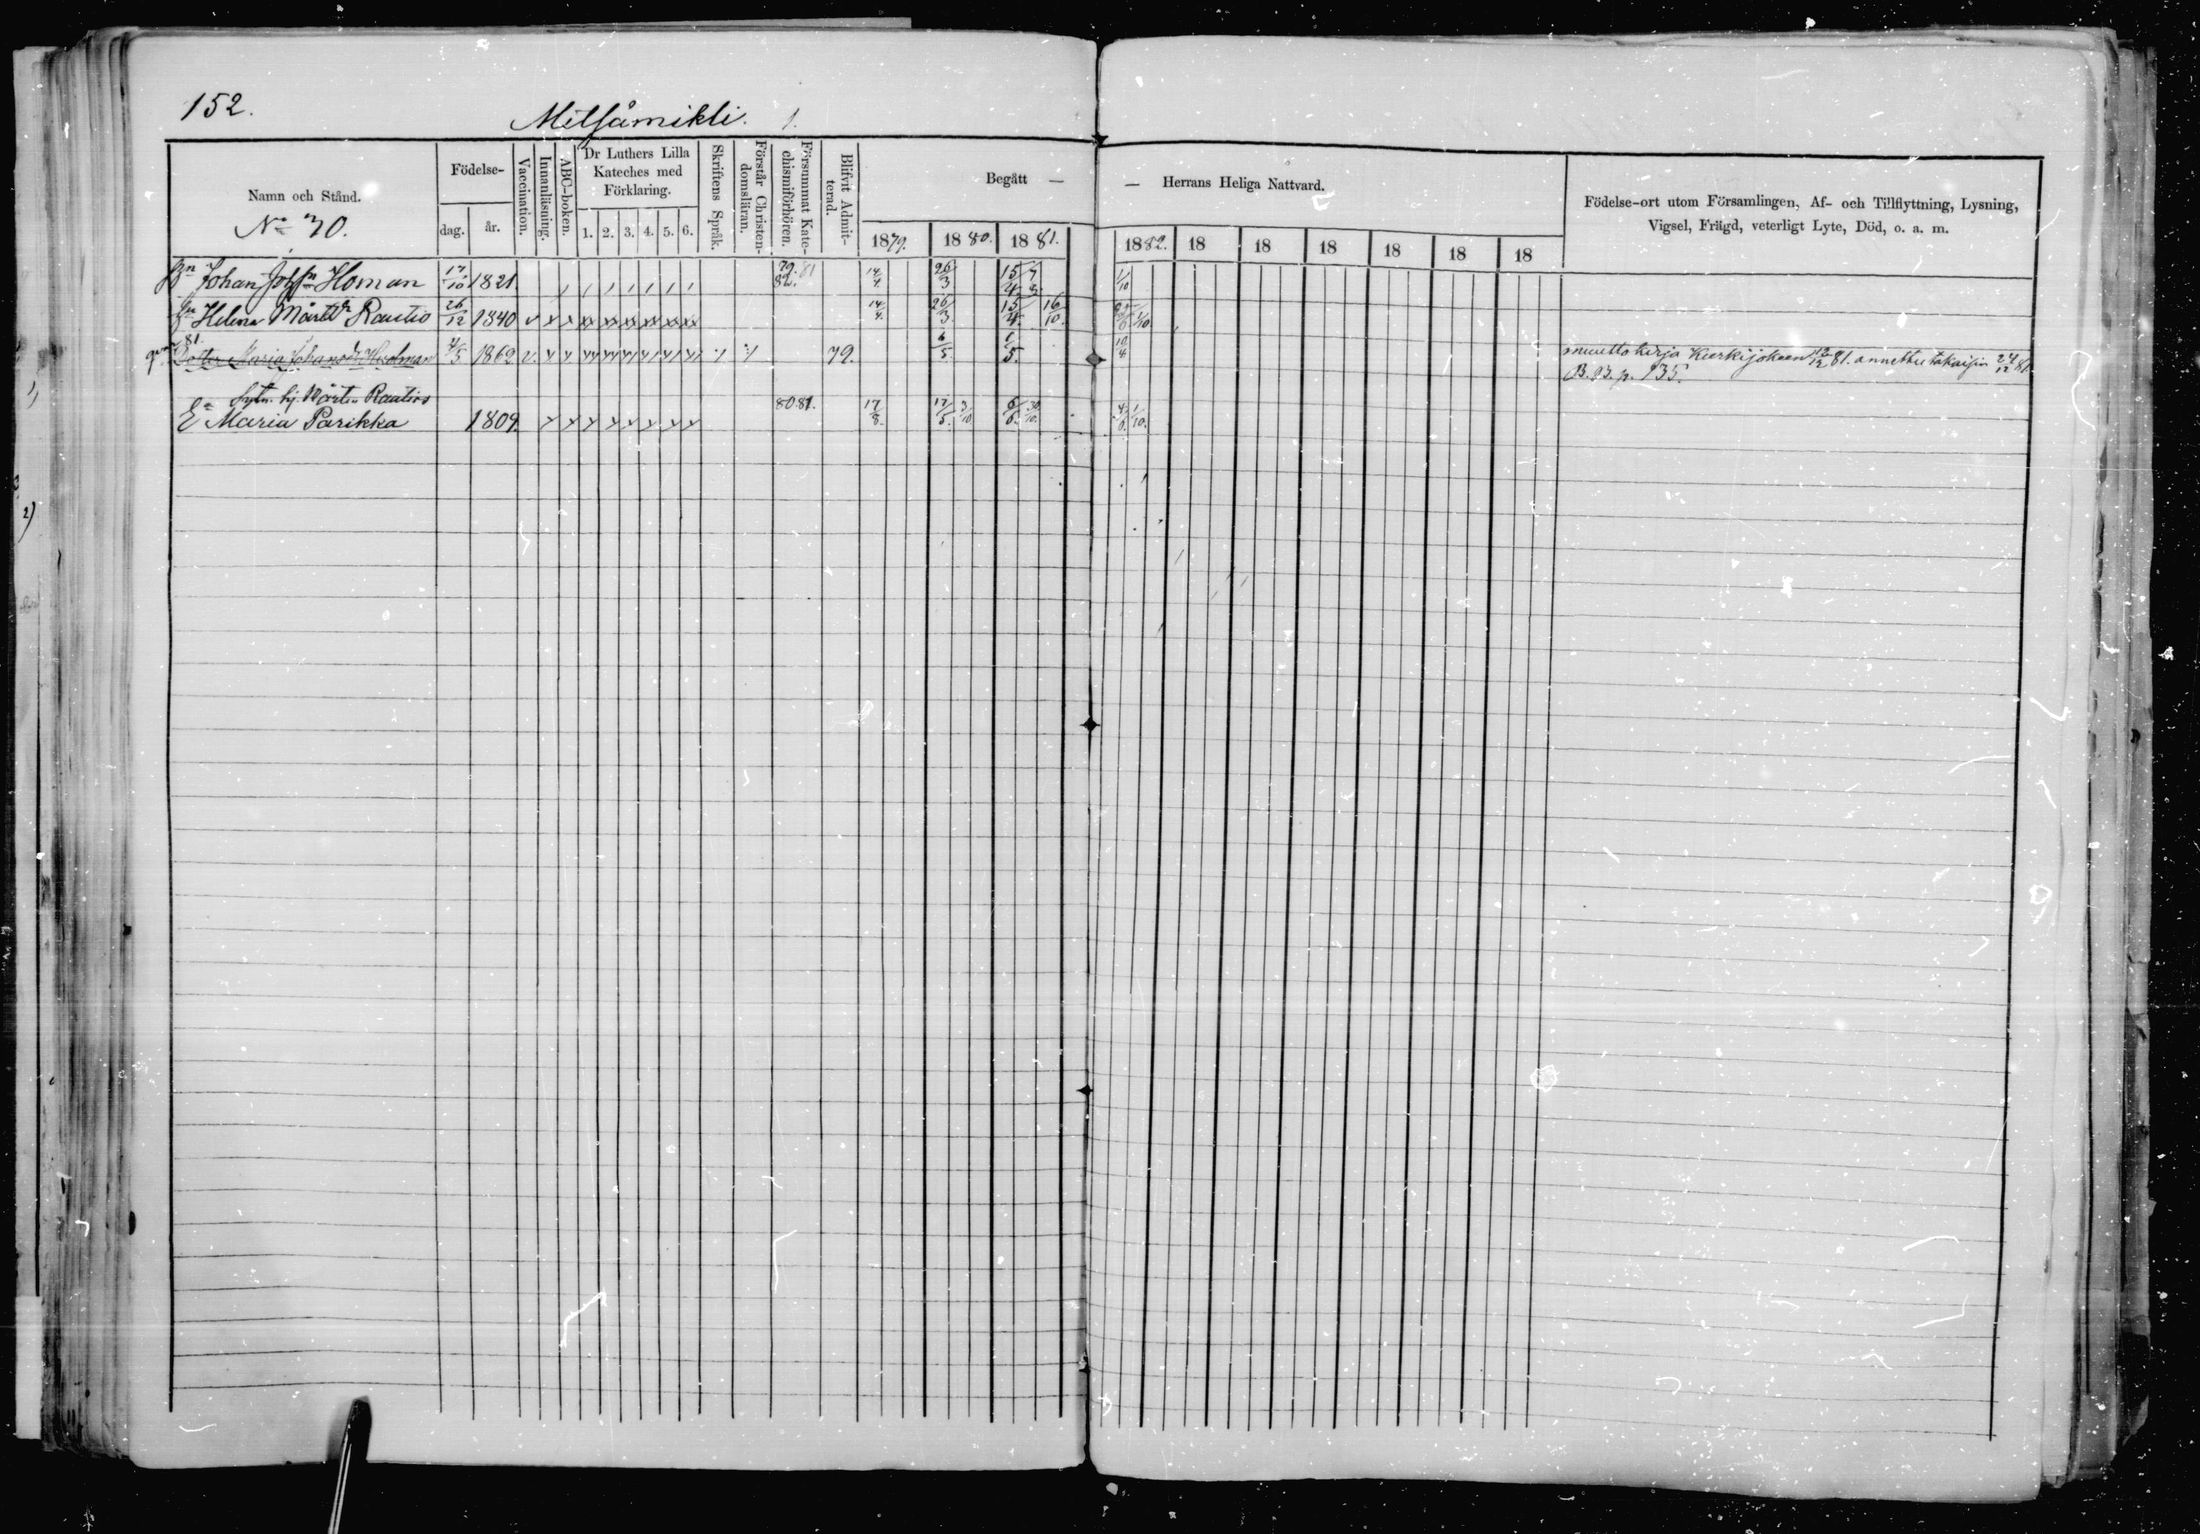 152.
Mitsämikli. 1.
Namn och Stånd.
No 30.
Födelse-
dag. år.
Vaccination.
Innanläsning.
ABC-boken.
Dr Luthers Lilla Kateches med Förklaring.
1. 2. 3. 4. 5. 6.
Skriftens Språk.
Förstår Christen-domsläran.
Försummat Kate-chismiförhören.
Blifvit Admit-terad.
Begått — — Herrans Heliga Nattvard.
1879. 1880. 1881. 1882. 18 18 18 18 18 18
Födelse-ort utom Församlingen, Af- och Tillflyttning, Lysning,
Vigsel, Frägd, veterligt Lyte, Död, o. a. m.
Bn Johan Johsn Homan 17/10 1821. 79. 81 82. 14/4. 26/3 15/4 1/10
Hu Helena Mårtdr Rautio 26/12 1840 v x x x x x x x x 14/4. 26/3. 15/4. 16/10. 1/10
81. Doter Maria Johansdr 4/5 1862 v. 79. 6/5. 6/5. 10/4 muuttokirja Kurkijokeen 12/12 81. annettu takaisin 24/12 81.
B.B. p. 135.
hj. Mårten Rautios
Ea Maria Parikka 1809. 80.81. 17/8. 17/5. 3/10 6/6. 30/10. 4/6. 1/10.
2)